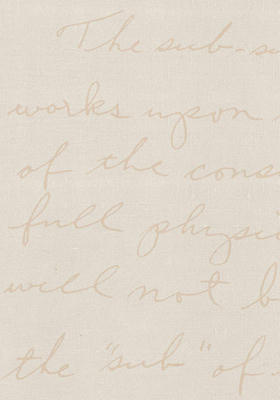 The sub-su
works upon
of the cons
full physic
will not b
the "sub" of